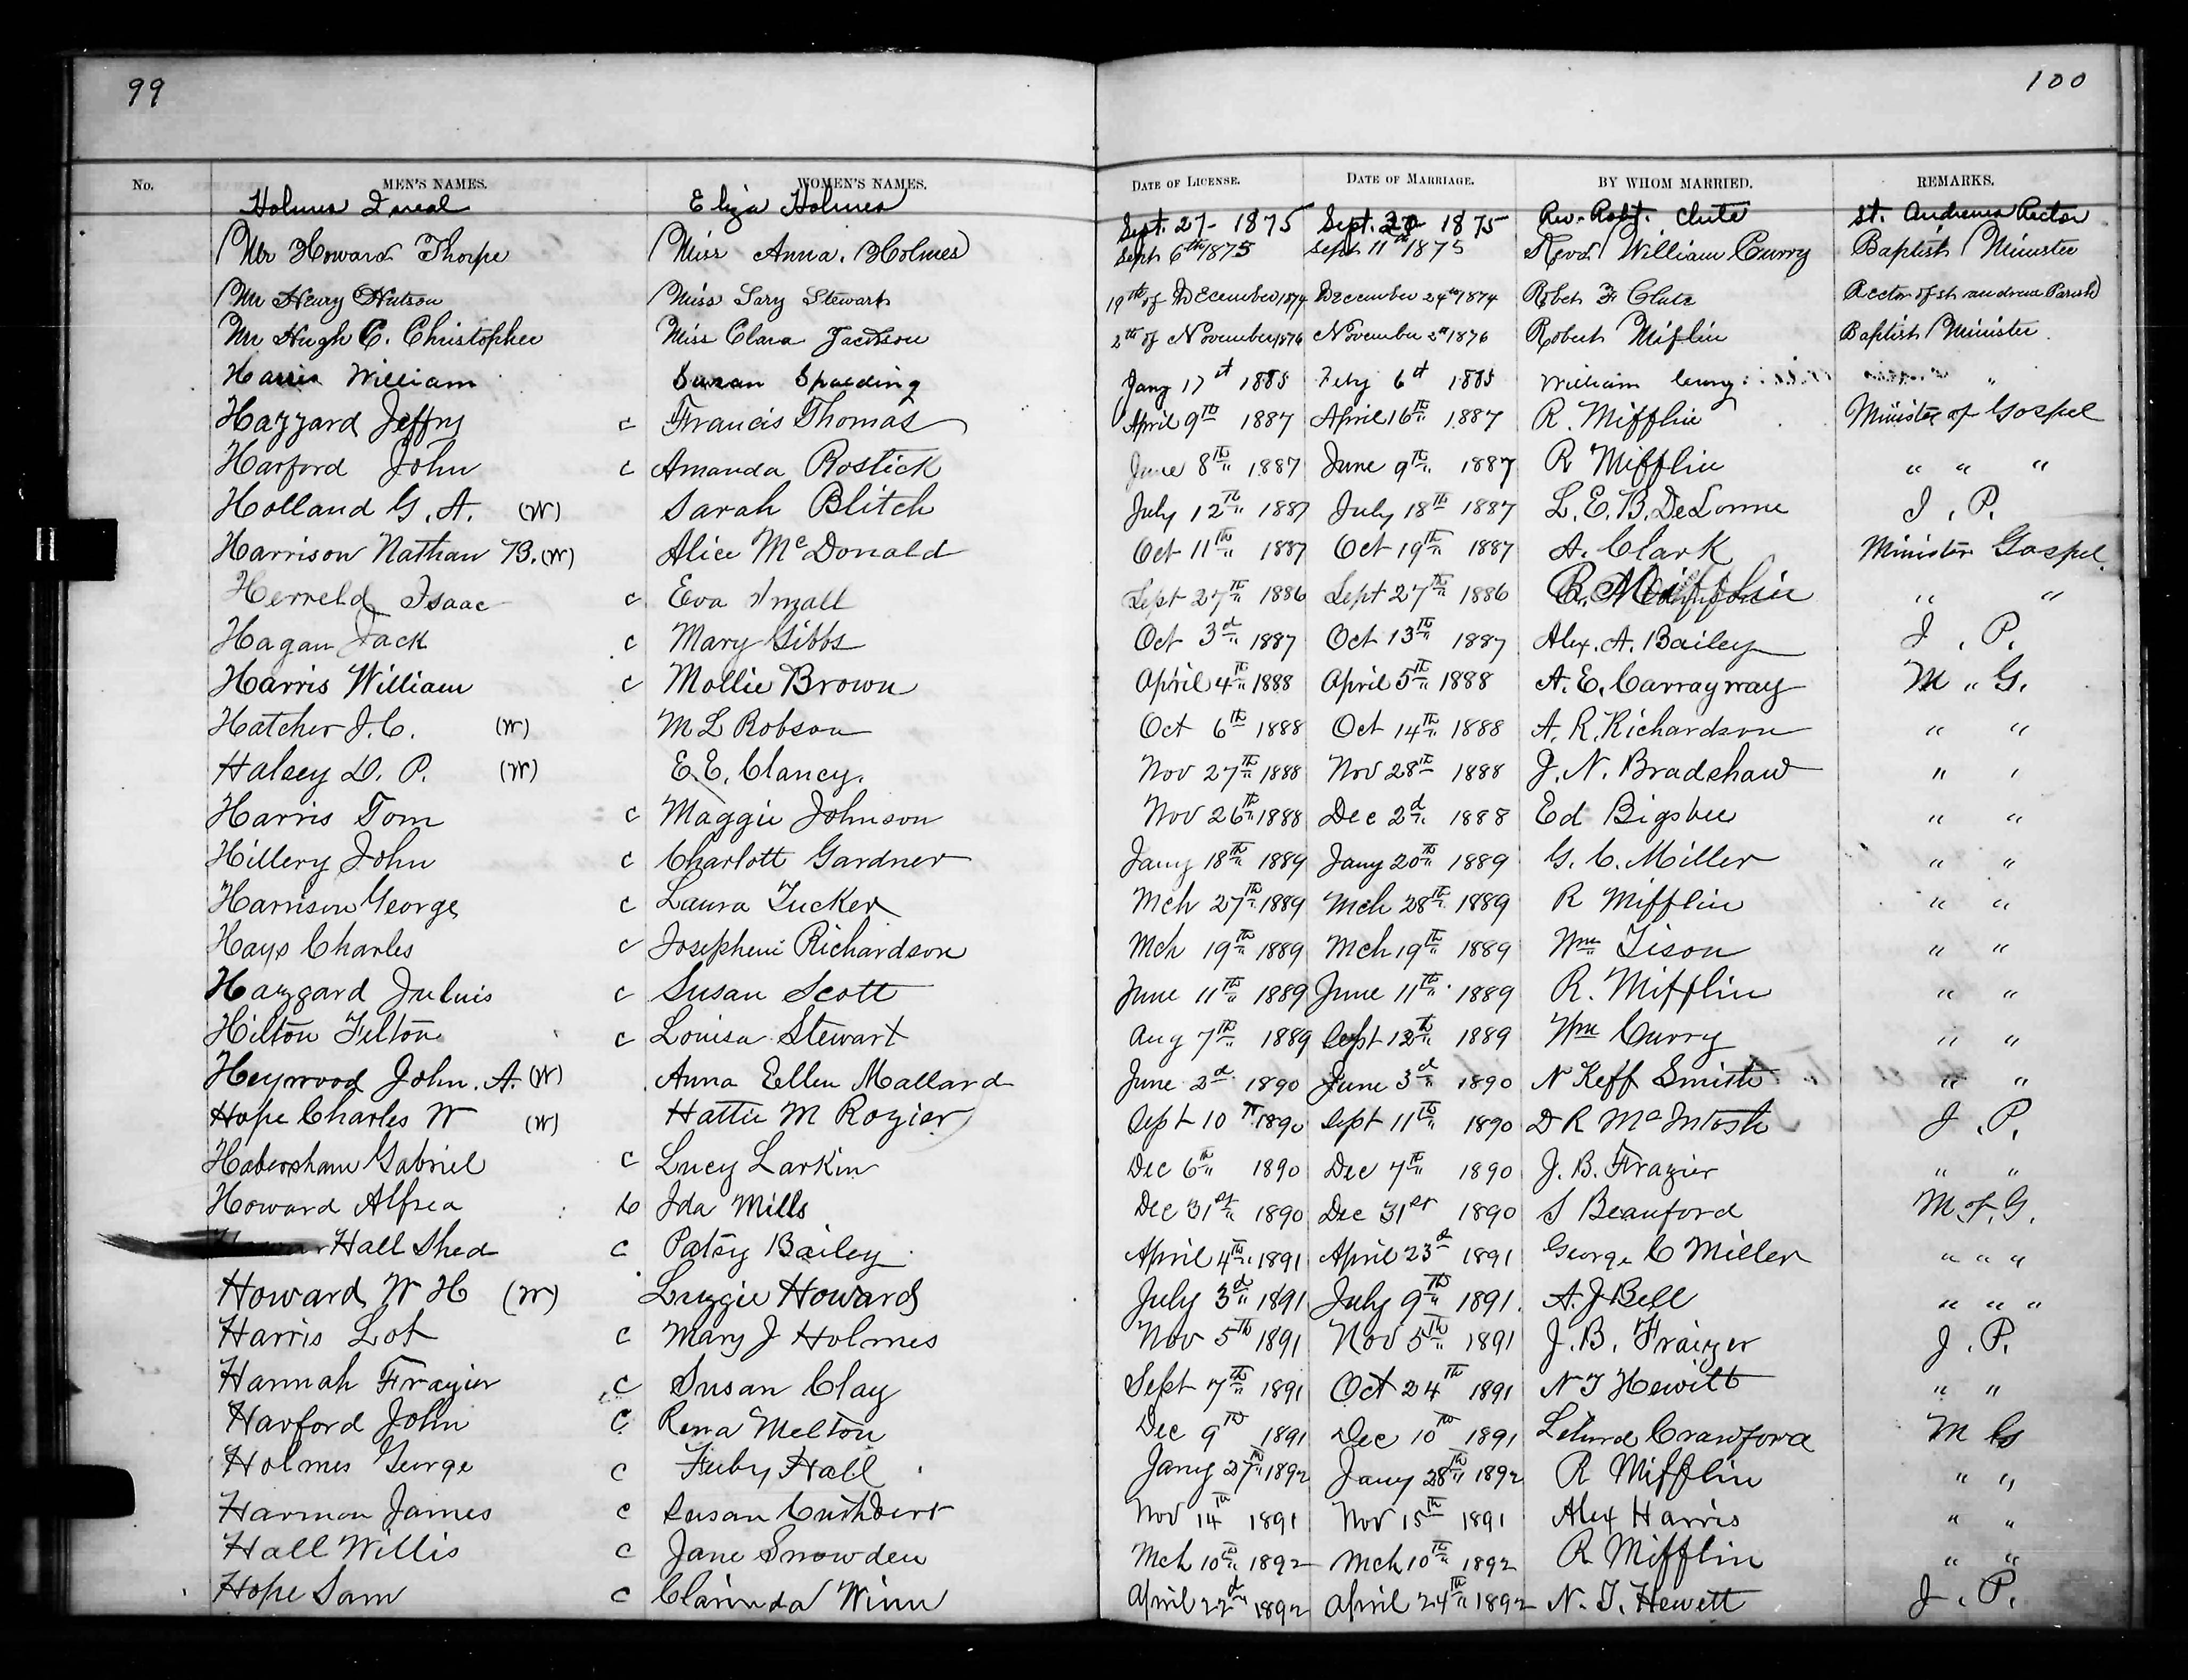 99
100
No. MEN'S NAMES. WOMEN'S NAMES. DATE OF LICENSE. DATE OF MARRIAGE. BY WHOM MARRIED. REMARKS.
Holmes Isreal Eliza Holmes Sept. 27- 1875 Sept. 1875 Rev. Robt. Clute St. Andrews Rector
Mr Howard Thorpe Miss Anna. Holmes Sept 6th 1875 Sept 11th 1875 Revd William Curry Baptist Minister
Mr Henry Hutson Miss Sary Stewart 19th of December 1874 December 24th 1874 Robet F Clute Rector of St andrew Parish
Mr Hugh C. Christopher Miss Clara Jackson 2th of November 1876 November 2th 1876 Robert Miflin Baptist Minister
Harris William Susan Spaulding Jany 17st 1885 Feby 6st 1885 William Curry "
Hazzard Jeffry c Francis Thomas April 9th 1887 April 16th 1887 R. Mifflin Minister of Gospel
Harford John c Amanda Rostick June 8th 1887 June 9th 1887 R Mifflin " " "
Holland G. A. (W) Sarah Blitch July 12th 1887 July 18th 1887 L. E. B. DeLorme J. P.
Harrison Nathan B. (W) Alice McDonald Oct 11th 1887 Oct 19th 1887 A. Clark Minister Gospel
Herreld Isaac c Eva Small Sept 27th 1886 Sept 27th 1886 R. Mifflin " "
Hagan Jack c Mary Gibbs Oct 3d 1887 Oct 13th 1887 Alex. A. Bailey J. P.
Harris William c Mollie Brown April 4th 1888 April 5th 1888 A. E. Carrayway M " G.
Hatcher J. C. (W) M L Robson Oct 6th 1888 Oct 14th 1888 A. R. Richardson " "
Halsey D. P. (W) E. E. Clancy. Nov 27th 1888 Nov 28th 1888 J. N. Bradshaw " "
Harris Tom c Maggie Johnson Nov 26th 1888 Dec 2d 1888 Ed Bigsbee " "
Hillery John c Charlott Gardner Jany 18th 1889 Jany 20th 1889 G. C. Miller " "
Harrison George c Laura Tucker Mch 27th 1889 Mch 28th 1889 R Mifflin " "
Hays Charles c Josephene Richardson Mch 19th 1889 Mch 19th 1889 Wm Tison " "
Hazzard Juluis c Susan Scott June 11th 1889 June 11th 1889 R. Mifflin " "
Hilton Filton c Louisa Stewart Aug 7th 1889 Sept 12th 1889 Wm Curry " "
Heywood John. A. (W) Anna Ellen Mallard June 2d 1890 June 3d 1890 N Keff Smith " "
Hope Charles W (W) Hattie M Rozier Sept 10th 1890 Sept 11th 1890 D R McIntosh J. P.
Habersham Gabriel c Lucy Larkin Dec 6th 1890 Dec 7th 1890 J. B. Frazier " "
Howard Alfred C Ida Mills Dec 31st 1890 Dec 31st 1890 S Beauford M of G.
Hall Shed c Patsy Bailey April 4th 1891 April 23d 1891 George C Miller " " "
Howard W H (W) Lizzie Howard July 3d 1891 July 9th 1891. A. J Bell " " "
Harris Lot c Mary J Holmes Nov 5th 1891 Nov 5th 1891 J. B. Fraizer J. P.
Hannah Frazier c Susan Clay Sept 7th 1891 Oct 24th 1891 N T Hewitt " "
Harford John c Rena Melton Dec 9th 1891 Dec 10th 1891 Crawford M G
Holmes George c Hall Jany 27th 1892 Jany 28th 1892 R Mifflin " "
Harmon James c Susan Cuthbert Nov 14th 1891 Nov 15th 1891 Alex Harris " "
Hall Willis c Jane Snowden Mch 10th 1892 Mch 10th 1892 R Mifflin " "
Hope Sam c Clarinda Winn April 22d 1892 April 24th 1892 N. T. Hewett J. P.